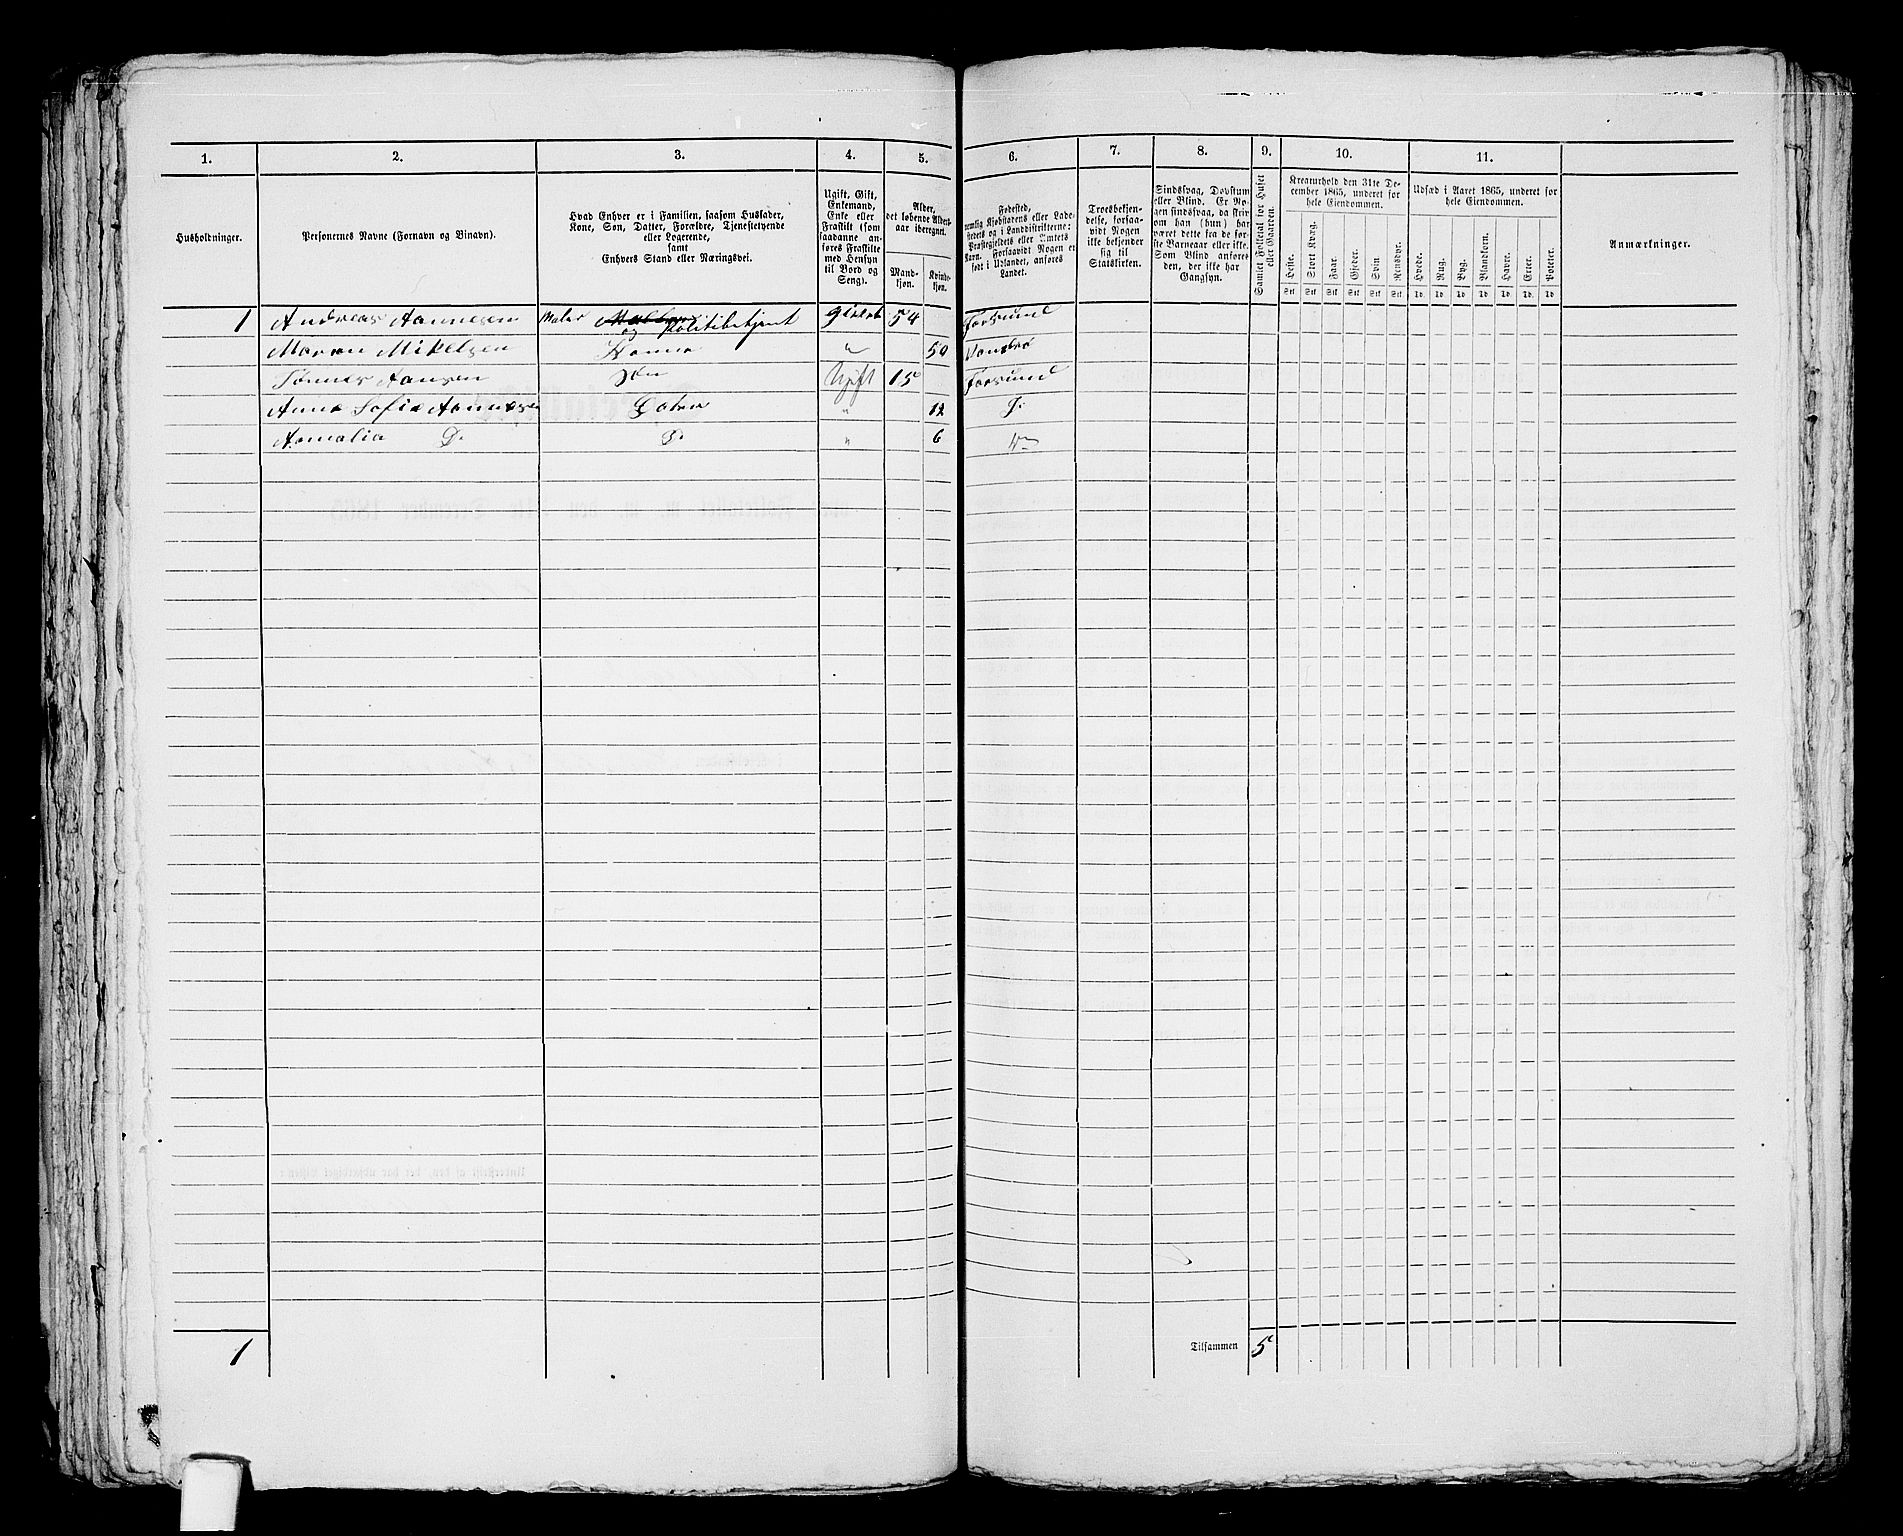 1. 2. 3. 4. 5. 6. 7. 8. 9. 10. 11.
Husholdninger.
Personernes Navne (Fornavn og Binavn).
Hvad Enhver er i Familien, saasom Husfader,
Kone, Søn, Datter, Forældre, Tjenestetyende
eller Logerende,
samt
Enhvers Stand eller Næringsvei.
Ugift, Gift,
Enkemand,
Enke eller
Fraskilt (som
saadanne an-
føres Fraskilte
med Hensyn
til Bord og
Seng).
Alder,
det løbende Alders-
aar iberegnet.
Mand-
kjøn.
Kvinde-
kjøn.
Fødested,
nemlig Kjøbstadens eller Lade-
stedets og i Landdistrikterne:
Præstegjeldets eller Amtets
Navn. Forsaavidt Nogen er
født i Udlandet, anføres
Landet.
Troesbekjen-
delse, forsaa-
vidt Nogen
ikke bekjender
sig til
Statskirken.
Sindssvag, Døvstum
eller Blind. Er No-
gen sindssvag, da skriv
om han (hun) har
været dette fra de før-
ste Barneaar eller ikke.
Som Blind anføres
den, der ikke har
Gangsyn.
Samlet Folketal for Huset
eller Gaarden.
Kreaturhold den 31te De-
cember 1865, underet for
hele Eiendommen.
Heste. Stort Kvæg. Faar. Gjeder. Svin Rensdyr.
Stk Stk Stk Stk Stk Stk.
Udsæd i Aaret 1865, underet for
hele Eiendommen.
Hvede. Rug. Byg. Blandkorn. Havre. Erter. Poteter.
Td. Td Td Td Td Td. Td
Anmærkninger.
1 Andreas Aannesen Maler og Politibetjent gift 54 Farsund
Maren Mikelsen Konne " 50 Vansø
Tønnes Aansen Søn Ugift 15 Farsund
Anne Sofie Aannesen Datter " 12 D.
Aamalia D. D. " 6
1 Tilsammen 5